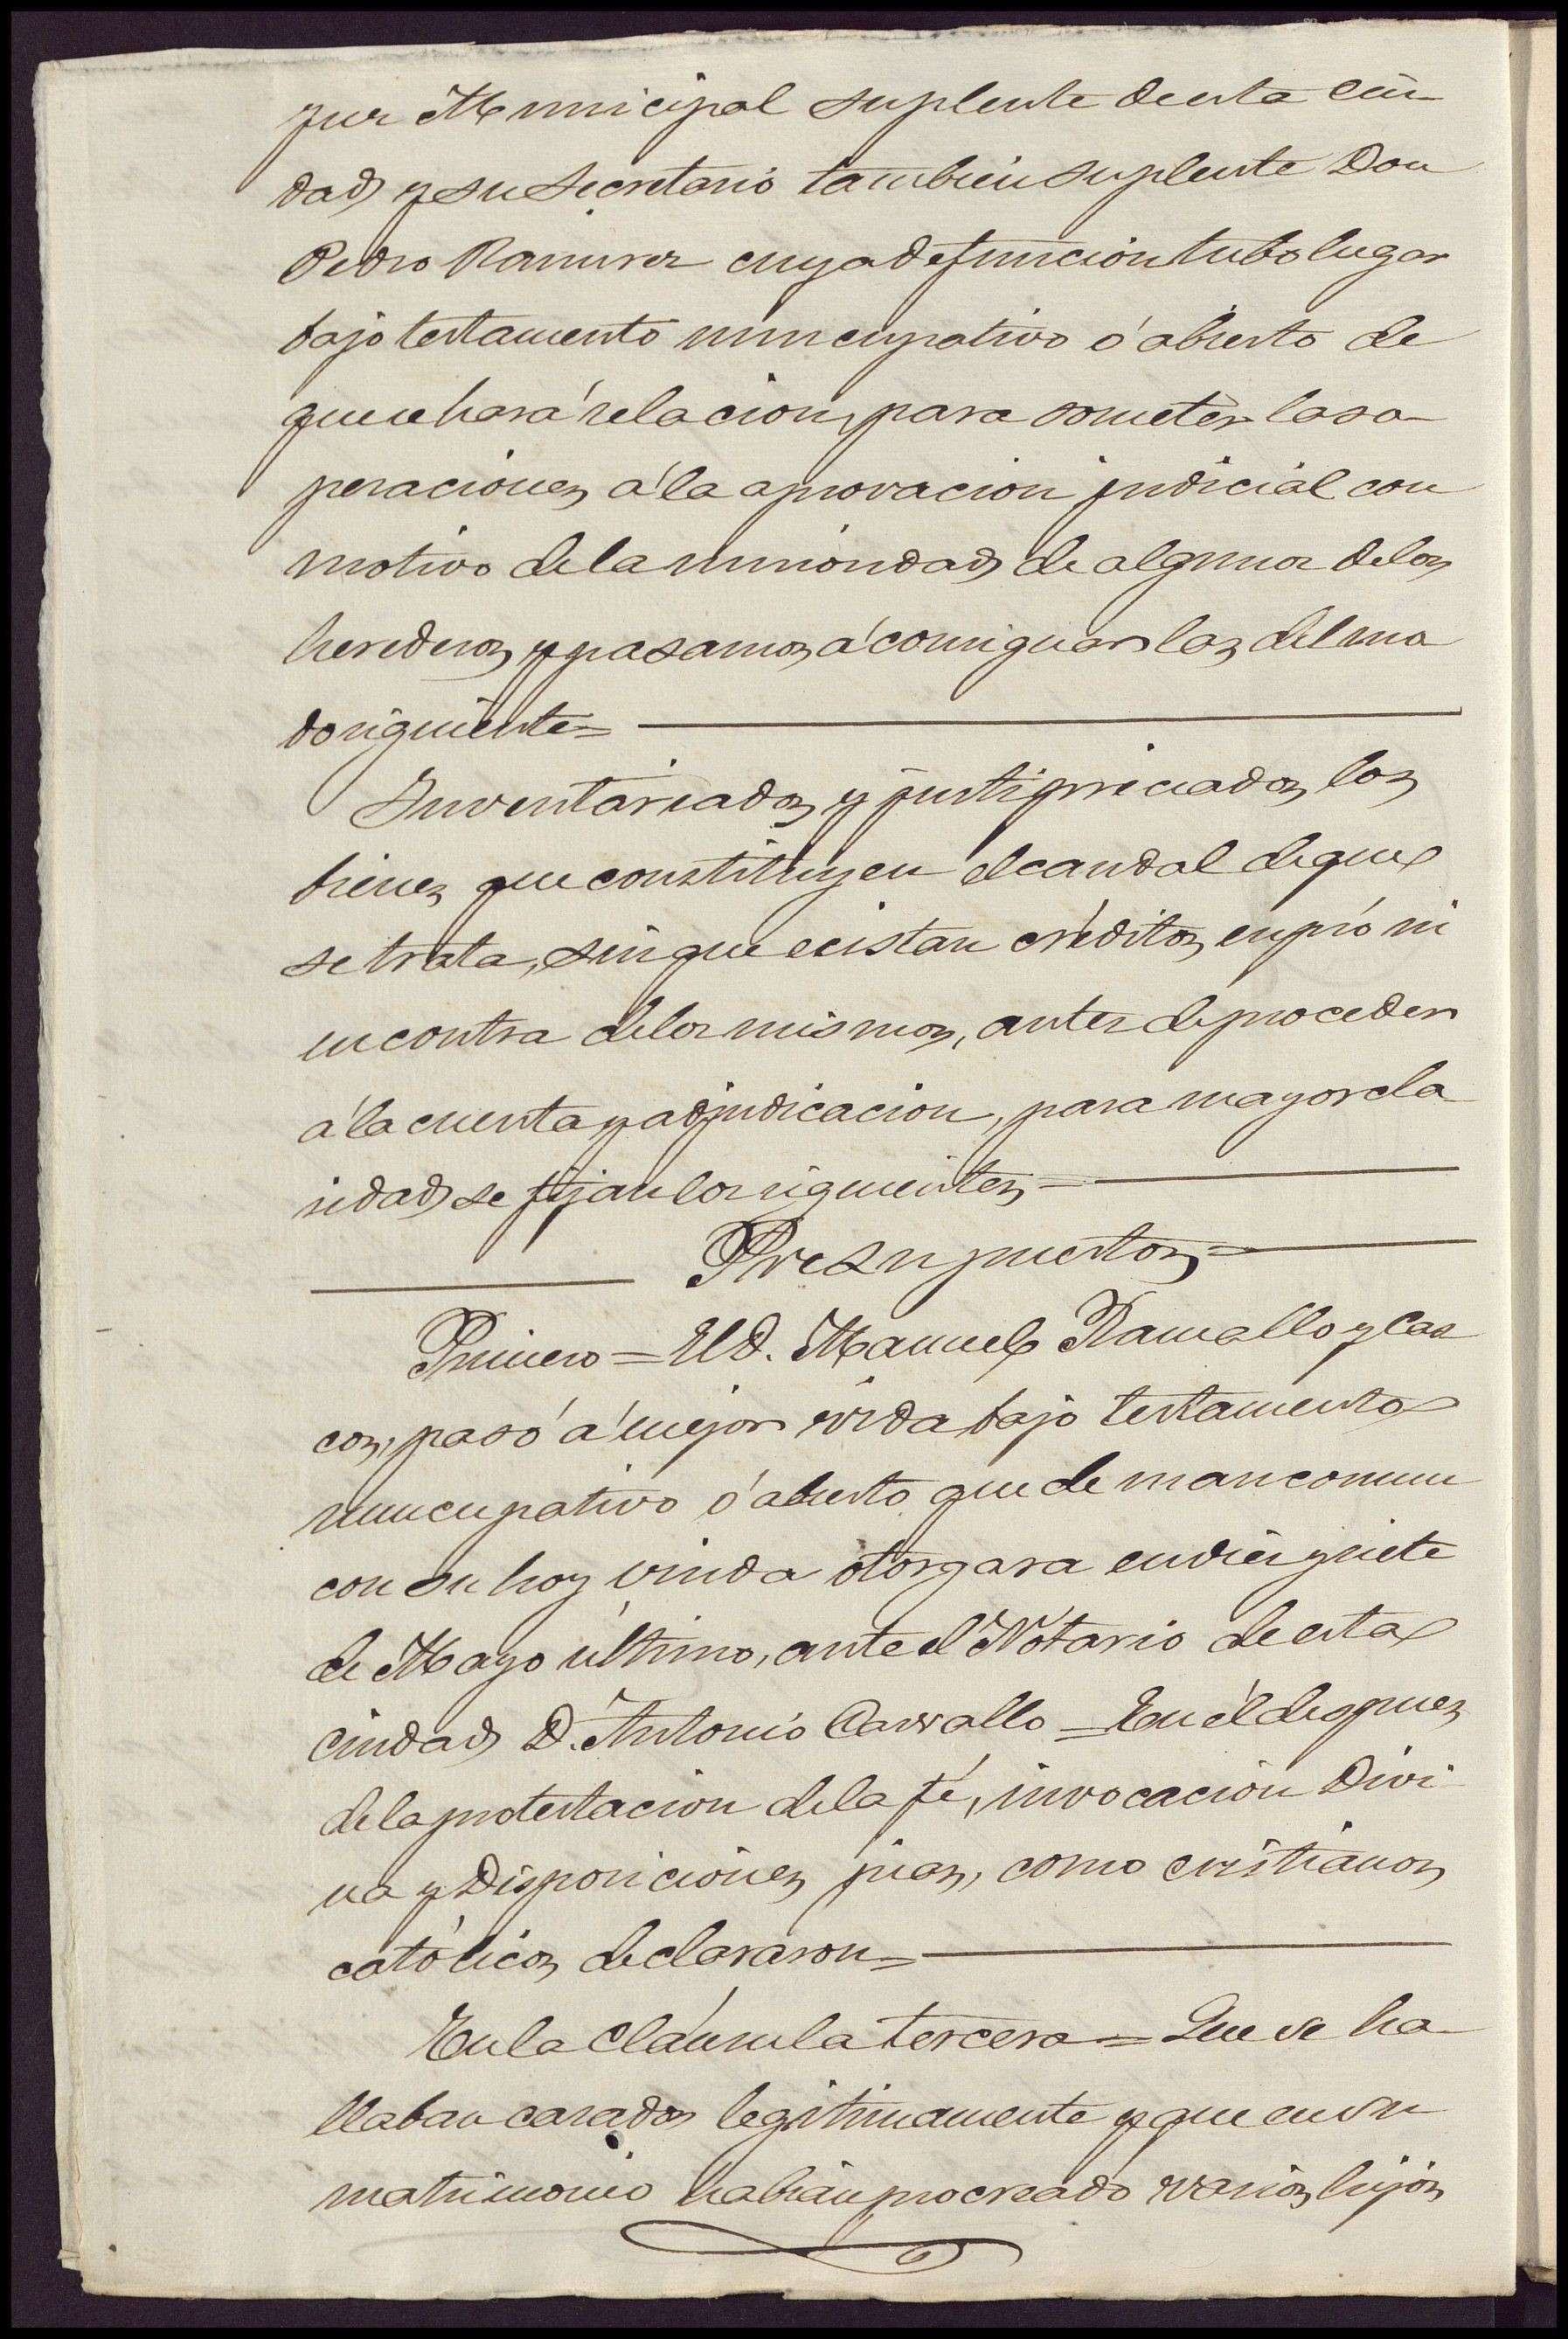 juez Municipal suplente de esta ciu-
dad y su secretario tambien suplente Don
Pedro Ramirez cuya defuncion tubo lugar
bajo testamento nuncupativo ó abierto de
que se hará relacion, para someter las o-
peraciones á la aprovacion judicial con
motivo de la minoridad de algunos de los
herederos y pasamos á consignarlas del mo
do siguiente=
Inventariados y justipreciados los
bienes que constituyen el caudal de que
se trata, sin que ecistan créditos en pró ni
en contra de los mismos, antes de proceder
á la cuenta y adjudicacion, para mayor cla
ridad se fijan los siguientes=
Presupuestos=
Primero=El D. Manuel Ramallo y Cas
cos, pasó á mejor vida bajo testamento
nuncupativo ó abierto que de mancomun
con su hoy viuda otorgara en diez y siete
de Mayo último, ante el Notario de esta
ciudad D. Antonio Carvallo=En él despues
de la protestacion de la fé, invocacion Divi
na y Disposiciones pias, como cristianos
católicos declararon=
En la Cláusula tercera=Que se ha-
llaban casados legitimamente y que en su
matrimonio habian procreado varios hijos